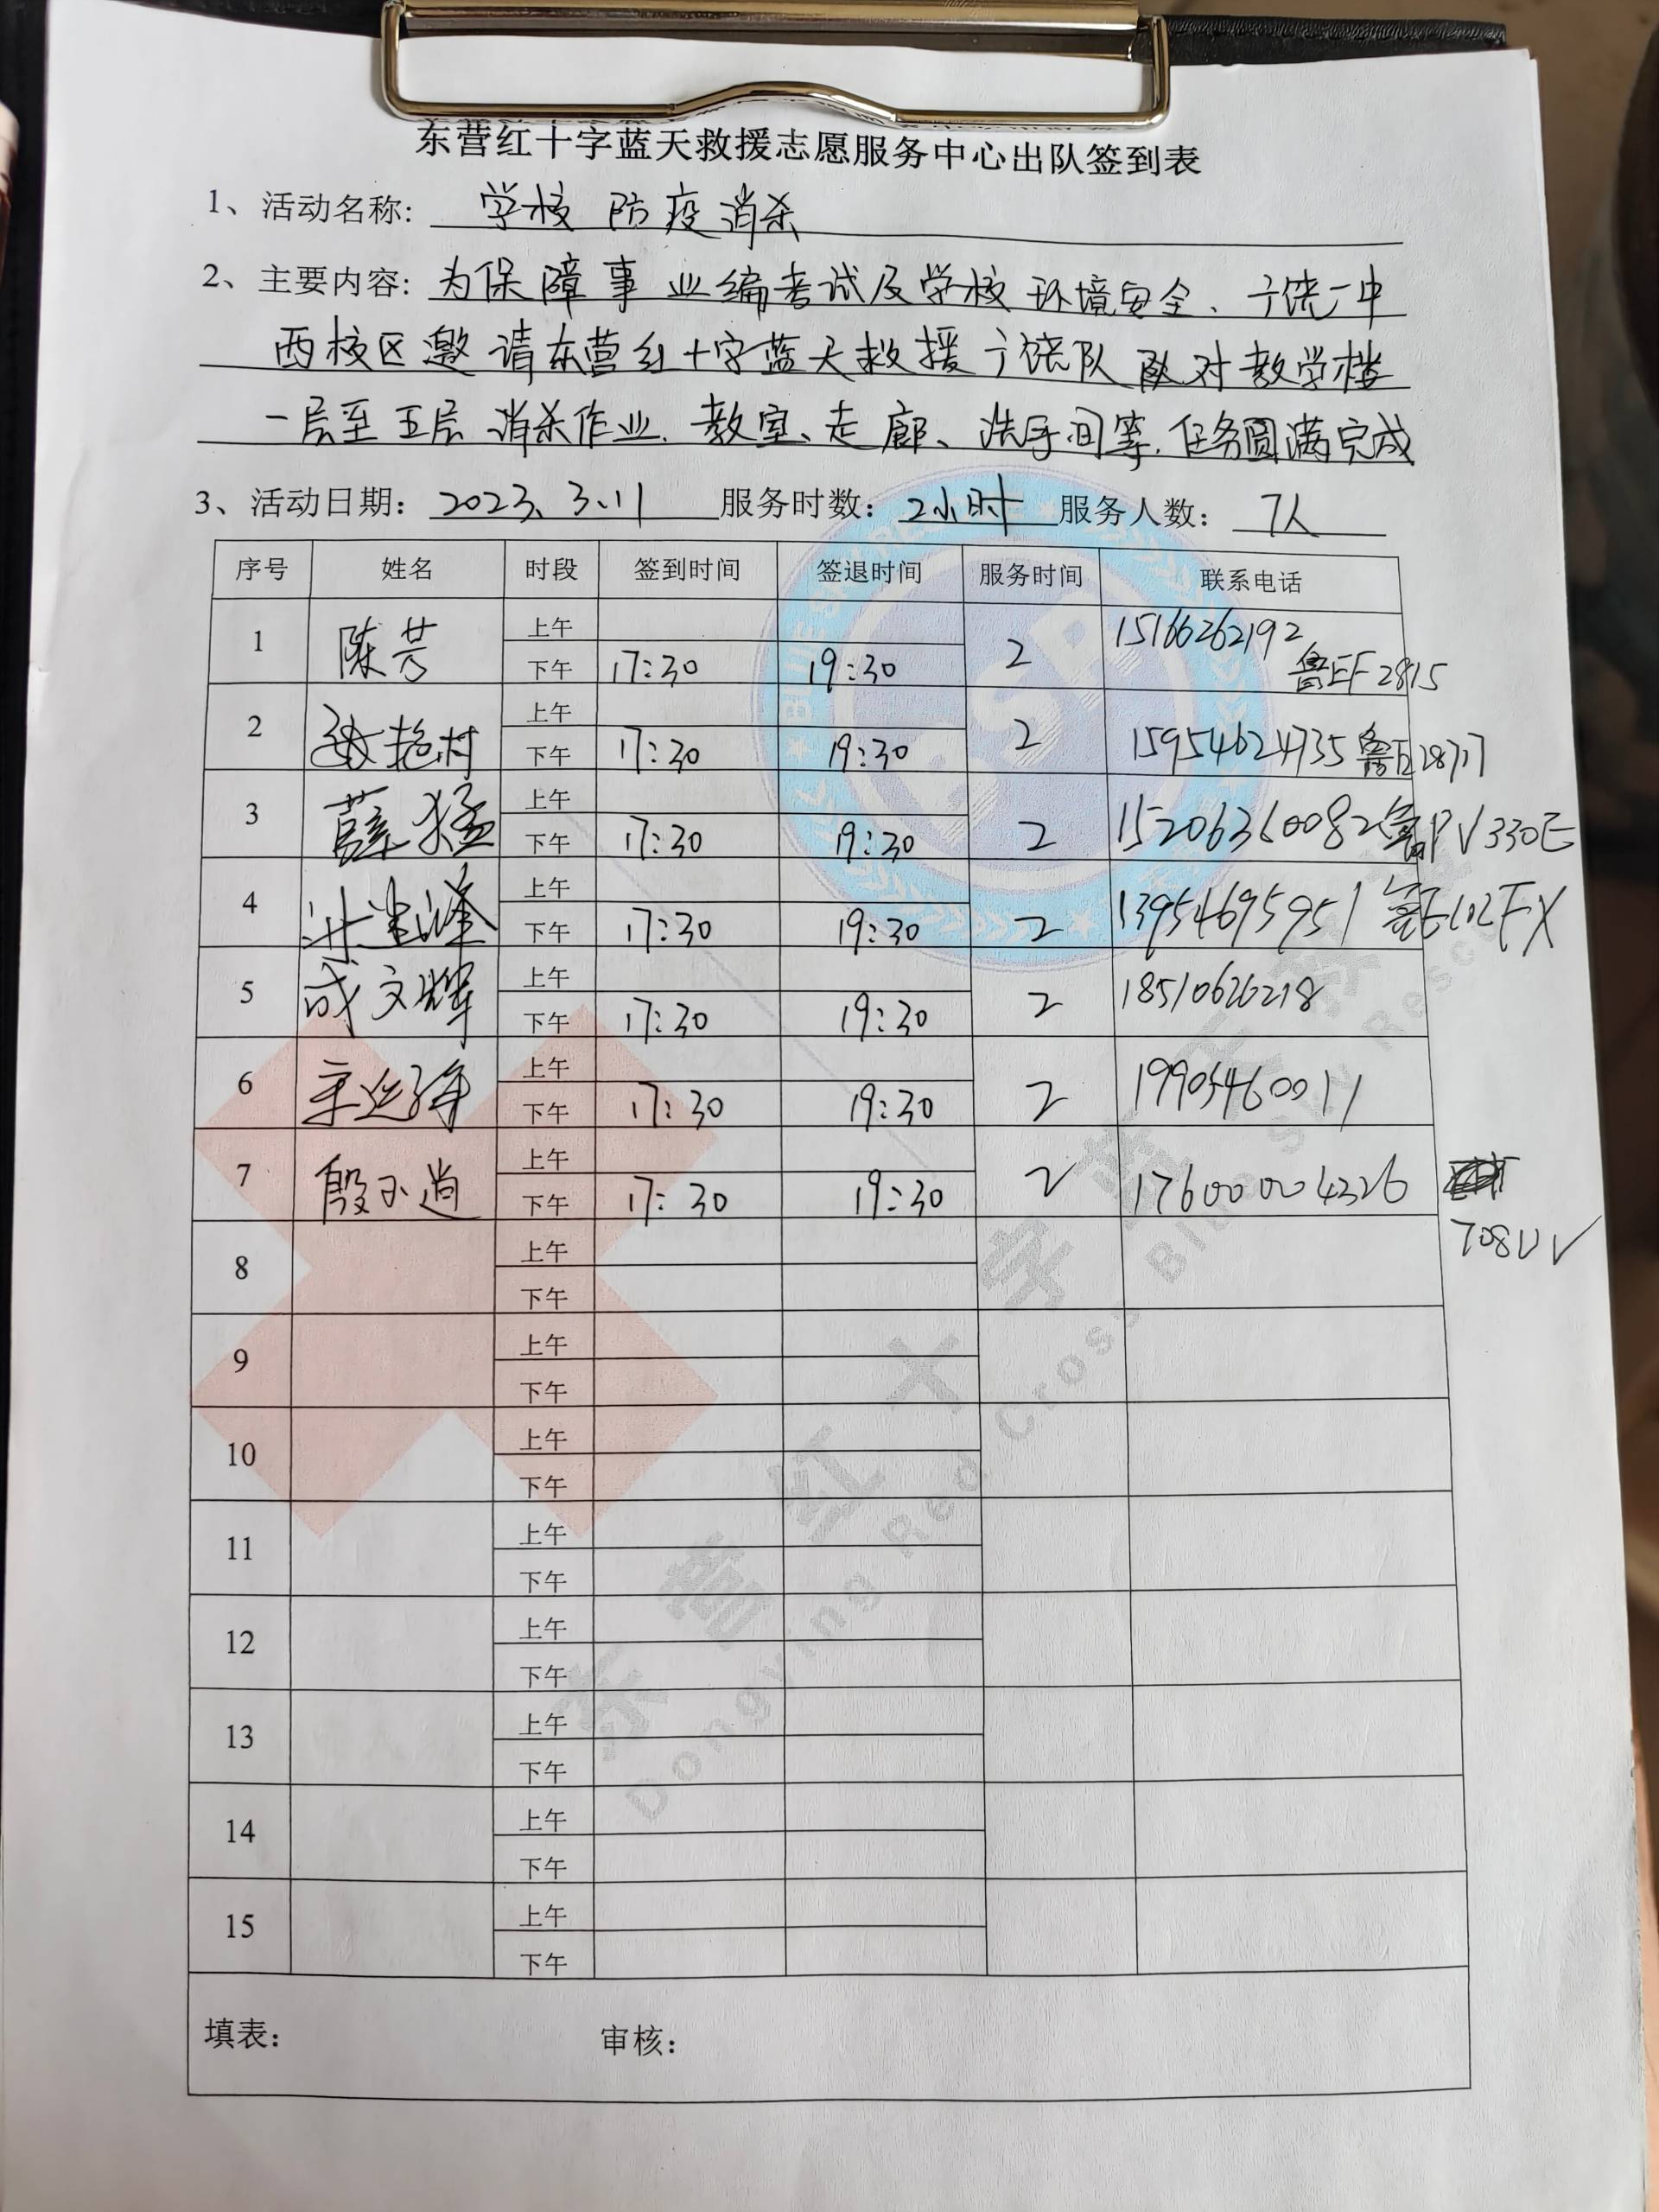 东营红十字蓝天救援志愿服务中心出队签到表
1、活动名称: 学校 防疫消杀
2、主要内容: 为保障事业编考试及学校环境安全、广饶一中
西校区邀请东营红十字蓝天救援广饶队 对教学楼
一层至五层消杀作业、教室、走廊、洗手间等,任务圆满完成
3、活动日期: 2023、3、11 服务时数: 2小时 服务人数: 7人
序号 姓名 时段 签到时间 签退时间 服务时间 联系电话
1 陈芳 上午
下午 17:30 19:30 2 15166262192
鲁EF2815
2 上午
下午 17:30 19:30 2 15954624735
3 薛猛 上午
下午 17:30 19:30 2 15206360082 鲁PV330E
4 上午
下午 17:30 19:30 2 13954695951
5 成文辉 上午
下午 17:30 19:30 2 18510626218
6 上午
下午 17:30 19:30 2 19905460011
7 殷 尚 上午
下午 17:30 19:30 2
708UV
8 上午
下午
9 上午
下午
10 上午
下午
11 上午
下午
12 上午
下午
13 上午
下午
14 上午
下午
15 上午
下午
填表: 审核:
东营红十字蓝天救援
Dongying Red Cross Blue Sky Rescue